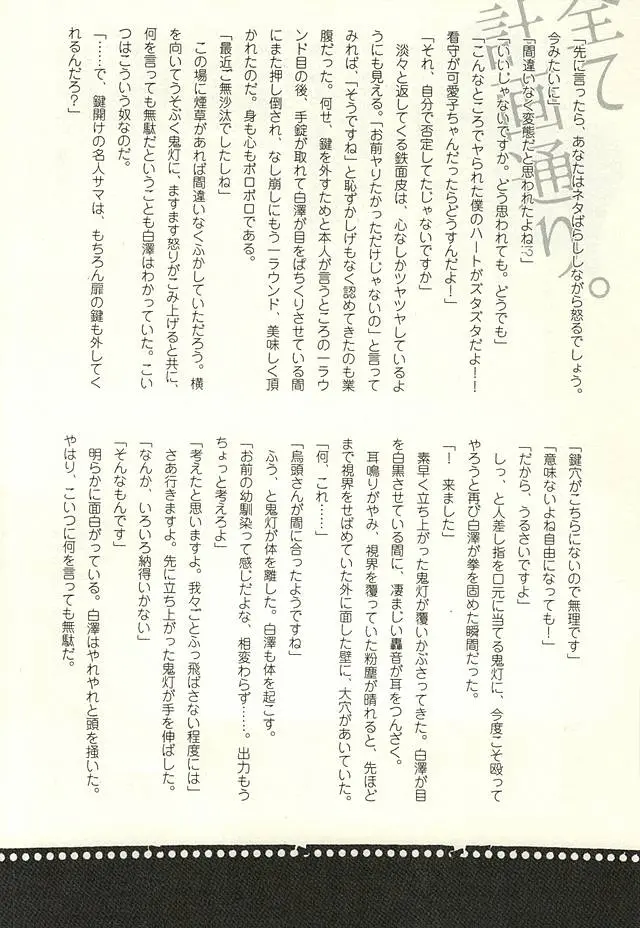 全て
計画通り。
「先に言ったら、あなたはネタばらししながら怒るでしょう。
今みたいに」
「間違いなく変態だと思われたよね!?」
「いいじゃないですか。どう思われても。どうでも」
「こんなところでヤられた僕のハートがズタズタだよ!!
看守が可愛子ちゃんだったらどうすんだよ!」
「それ、自分で否定してたじゃないですか」
淡々と返してくる鉄面皮は、心なしかツヤツヤしているよ
うにも見える。「お前ヤりたかっただけじゃないの」と言って
みれば、「そうですね」と恥ずかしげもなく認めてきたのも業
腹だった。何せ、鍵を外すためと本人が言うところの一ラウ
ンド目の後、手錠が取れて白澤が目をぱちくりさせている間
にまた押し倒され、なし崩しにもう一ラウンド、美味しく頂
かれたのだ。身も心もボロボロである。
「最近ご無沙汰でしたしね」
この場に煙草があれば間違いなくふかしていただろう。横
を向いてうそぶく鬼灯に、ますます怒りがこみ上げると共に、
何を言っても無駄だということも白澤はわかっていた。こい
つはこういう奴なのだ。
「……で、鍵開けの名人サマは、もちろん扉の鍵も外してく
れるんだろ?」
「鍵穴がこちらにないので無理です」
「意味ないよね自由になっても!」
「だから、うるさいですよ」
しっ、と人差し指を口元に当てる鬼灯に、今度こそ殴って
やろうと再び白澤が拳を固めた瞬間だった。
「! 来ました」
素早く立ち上がった鬼灯が覆いかぶさってきた。白澤が目
を白黒させている間に、凄まじい轟音が耳をつんざく。
耳鳴りがやみ、視界を覆っていた粉塵が晴れると、先ほど
まで視界をせばめていた外に面した壁に、大穴があいていた。
「何、これ……」
「烏頭さんが間に合ったようですね」
ふう、と鬼灯が体を離した。白澤も体を起こす。
「お前の幼馴染って感じだよな、相変わらず……。出力もう
ちょっと考えろよ」
「考えたと思いますよ。我々ごとふっ飛ばさない程度には」
さあ行きますよ。先に立ち上がった鬼灯が手を伸ばした。
「なんか、いろいろ納得いかない」
「そんなもんです」
明らかに面白がっている。白澤はやれやれと頭を掻いた。
やはり、こいつに何を言っても無駄だ。